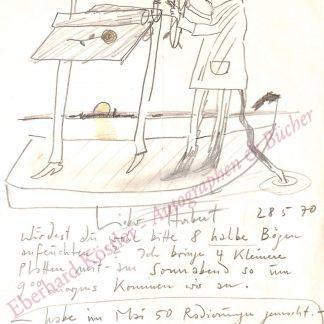 Lieber Herbert 28 5 70
Würdest du bitte 8 halbe Bögen
anfeuchten Ich bringe 4 kleinere
Platten mit - am Sonnabend so um
9 00 morgens kommen wir an.
- habe im Mai 50 Radierungen gemacht!
Eberhard Köstler - Autographen & Bücher